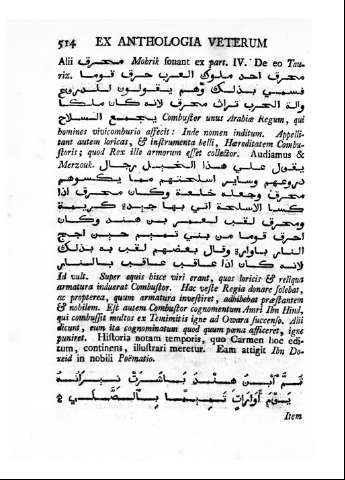 514 EX ANTHOLOGIA VETERUM
Alii محرق Mobrik sonant ex part. IV. De eo Tau-
riz. محرق احد ملوك العرب حرق قوما
فسمي بذلك وهم يقولون للدروع
والة الحرب تراث محرق لانه كان ملكا
يجمع السلاح Combustor unus Arabiæ Regum, qui
homines vivicomburio affecit: Inde nomen inditum. Appelli-
tant autem loricas, & instrumenta belli, Hæreditatem Combu-
storis; quod Rex ille armorum esset collector. Audiamus &
Merzouk. يقول علي هذا الخيل رجال
دروعهم وساير اسلحتهم مما يكسوهم
محرق وجعله خلعة وكان محرق اذا
كسا الاسلحة اتي بها جيدة كريمة
ومحرق لقب لعمر بن هند وكان
احرق قوما من بني تميم حين اجج
النار باوارة وقال بعضهم لقب به بذلك
لانه كان اذا عاقب عاقب بالنار
Id vult. Super equis hisce viri erant, quos loricis & reliqua
armatura induerat Combustor. Hac veste Regia donare solebat,
ac propterea, quum armatura investiret, adhibebat præstantem
& nobilem. Est autem Combustor cognomentum Amri Ibn Hind,
qui combussit multos ex Temimitis igne ad Owara succenso. Alii
dicunt, eum ita cognominatum quod quum pœna afficeret, igne
puniret. Historia notam temporis, quo Carmen hoc edi-
tum, continens, illustrari meretur. Eam attigit Ibn Do-
reid in nobili Poëmatio.
ثم ابن هند باشرت نيرانه
يوم اوارات تميما بالصلي
Item